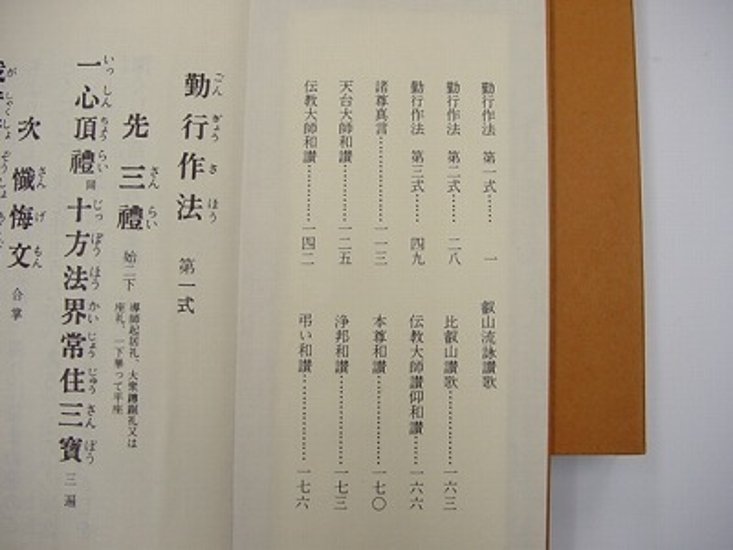 勤行作法　第一式……　一
勤行作法　第二式……　二八
勤行作法　第三式……　四九
諸尊真言…………　一一三
天台大師和讃…………　一二五
伝教大師和讃…………　一四二
叡山流詠讃歌
比叡山讃歌…………　一六三
伝教大師讃仰和讃……　一六六
本尊和讃…………　一七〇
浄邦和讃…………　一七三
弔い和讃…………　一七六
勤行作法　第一式
ごんぎょうさほう
先三禮　始二下
さんらい
導師起居礼、大衆蹲踞礼又は
座礼、一下畢って平座
一心頂禮　同　十方法界常住三寶　三遍
いっしんちょうらい　じっぽうほうかいじょうじゅうさんぼう
次　懺悔文　合掌
さんげもん